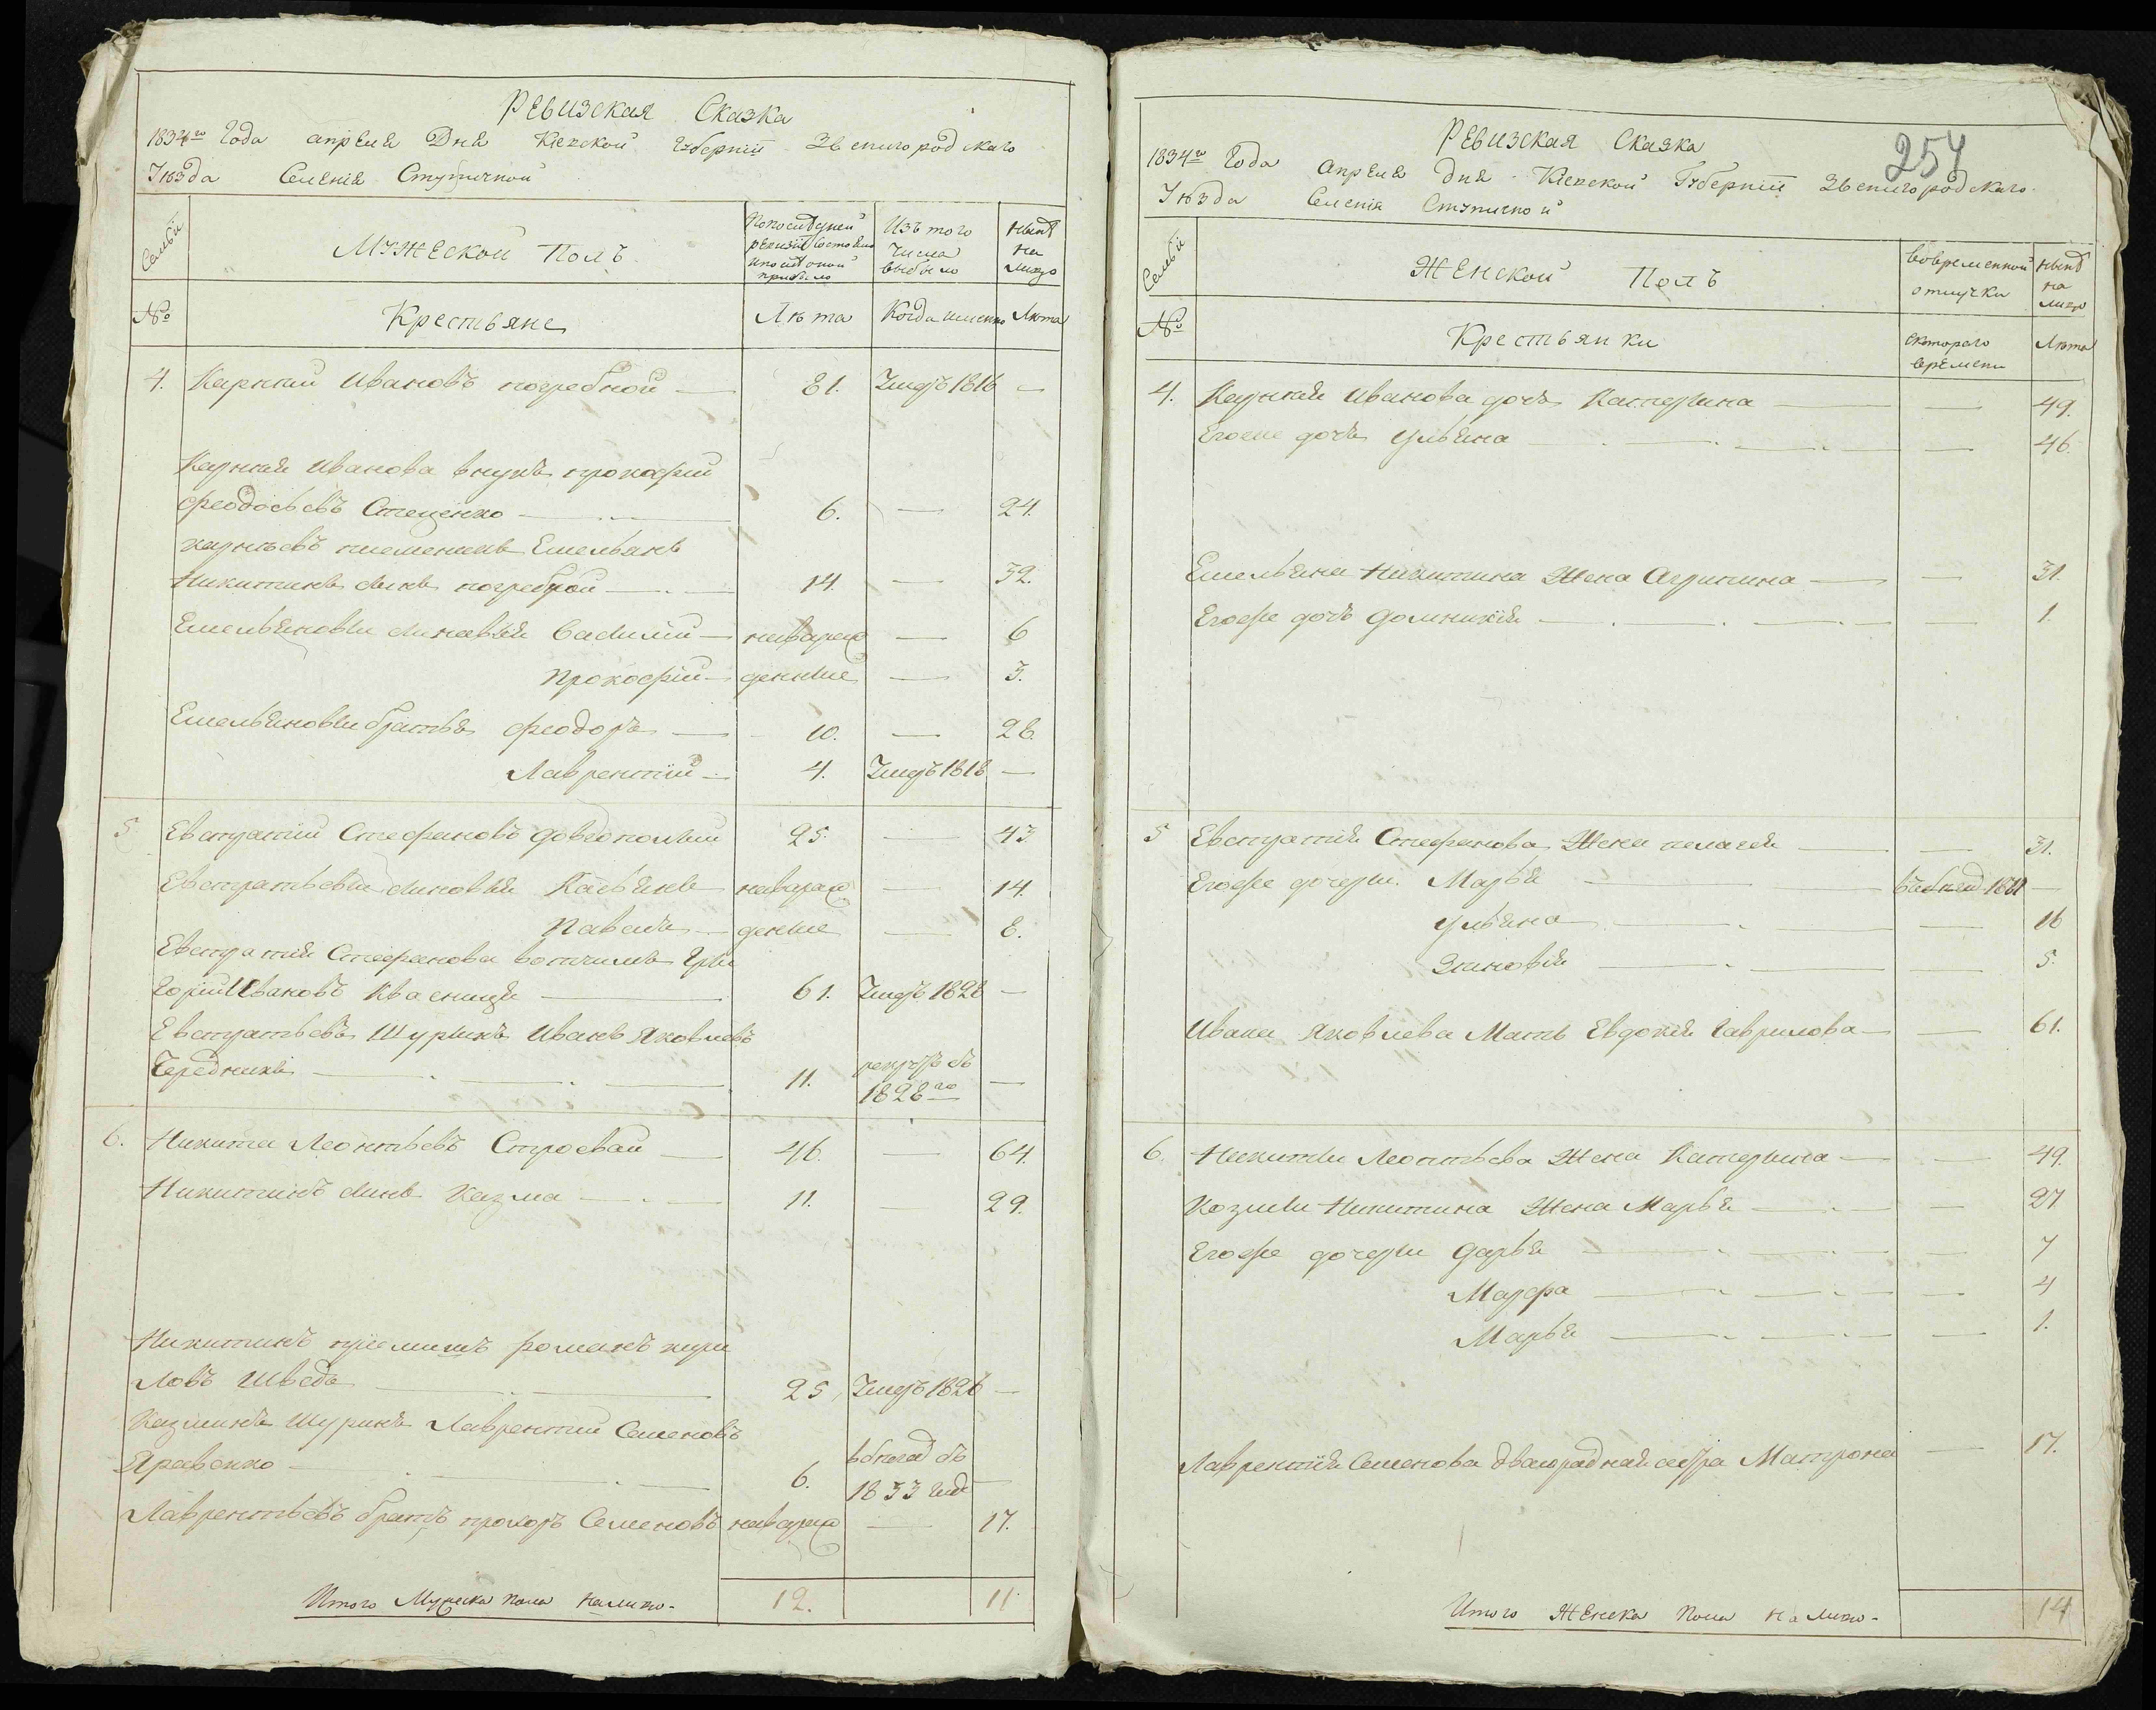 РЕВИЗСКАЯ Сказка
1834го Года апреля Дня Кіевской Губерніи Звенигородскаго
Уѣзда Селенія Ступичной
Семьи
МУЖЕСКОЙ ПОЛЪ
По последней ревизіи состояло и после оной прибыло
Изъ того числа выбыло
Нынѣ на лицо
№
Крестьяне
Лѣта
Когда именно
Лѣта
4. Карпий Ивановъ погребной — 81. Умеръ 1816 —
Карпия Иванова внукъ прокофий
Феодосьевъ Стеценко — 6. — 24.
карпьевъ племенникъ Емельянъ
Никитинъ сынъ погребной — 14. — 32.
Емельяновы сыновья Василий — новорож — 6
Прокофій — денные — 3.
Емельяновы братья Феодоръ — 10. — 28.
Лаврентій — 4. Умеръ 1818 —
5 Евстратий Стефановъ Довгополый 25 — 43.
Евстратьевы сыновья Касьянъ новорож — 14.
Павелъ — денные — 8.
Евстратия Стефанова вотчимъ Гри
горий Ивановъ Квасниця — 61. Умеръ 1828 —
Евстратьевъ Шуринъ Иванъ Яковлевъ
Чередникъ — 11. рекрутъ съ 1828го —
6. Никита Леонтьевъ Строевай — 46. — 64.
Никитинъ сынъ Казма — 11. — 29.
Никитинъ приемишъ романъ кири
ловъ Шведъ — 25 Умеръ 1826 —
Казминъ Шуринъ Лаврентий Семеновъ
Яравенко — 6. в бегах съ 1833 года —
Лаврентьевъ братъ прохоръ Семеновъ новорож — 17.
Итого Мужеска пола налицо. 12. 11
254
РЕВИЗСКАЯ Сказка
1834го Года Апреля дня Кіевской Губерніи Звенигородскаго
Уѣзда Селенія Ступичной
Семьи
ЖЕНСКОЙ ПОЛЪ
Во временной отлучки
Нынѣ на лицо
№
Крестьянки
скотораго времени
Лѣта
4. Карпия Иванова дочь Катерина — — 49.
Егоже дочь Ульяна — — 46.
Емельяна Никитина Жена Агрипина — — 31.
Егоже дочь Домникія — — 1.
5 Евстратия Стефанова Жена пелагея — — 31.
Егоже дочери. Марья —
Ульяна — — 16
Зиновія — — 5.
Ивана Яковлева Мать Евдокія Гаврилова — — 61.
6. Никиты Леонтьева Жена Катерина — — 49.
Козмы Никитина Жена Марья — — 27
Егоже дочери Дарья — — 7
Марфа — — 4
Марья — — 1.
Лаврентия Семенова двоюродная сестра Матрона — 17.
Итого Женска Пола налицо. 14